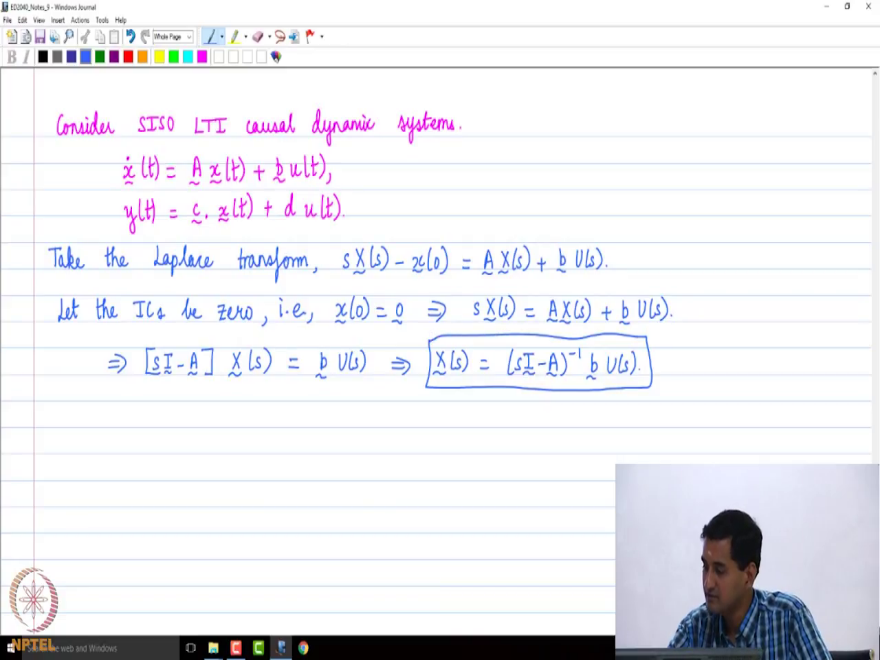 ED2040_Notes_9 - Windows Journal
File Edit View Insert Actions Tools Help
Whole Page
B I
Consider SISO LTI causal dynamic systems.
ẋ(t) = A x(t) + b u(t),
y(t) = c. x(t) + d u(t).
Take the Laplace transform, sX(s) - x(0) = A X(s) + b U(s).
Let the ICs be zero, i.e., x(0) = 0 ⇒ sX(s) = AX(s) + b U(s).
⇒ [sI-A] X(s) = b U(s) ⇒ X(s) = (sI-A)⁻¹ b U(s).
NPTEL
the web and Windows